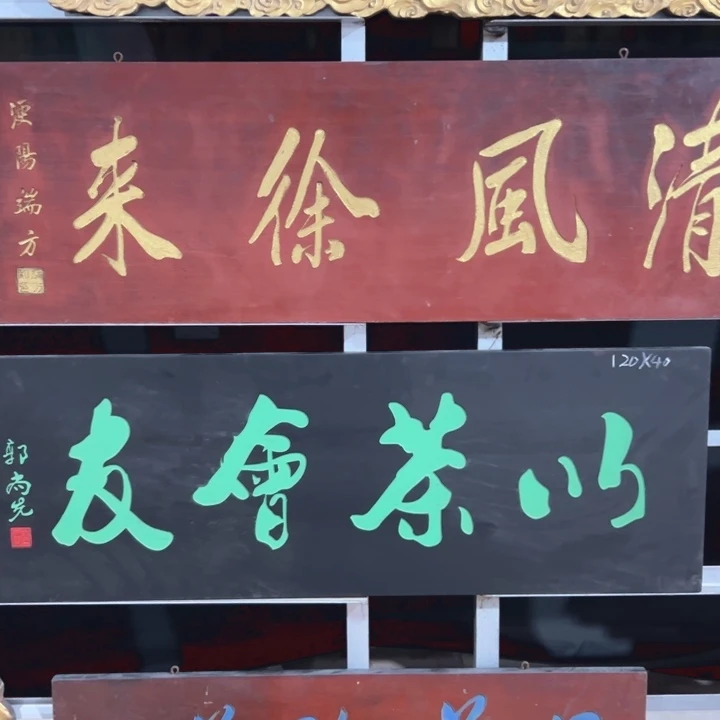 清風徐来
浭陽端方
120X40
以茶會友
郭尚先